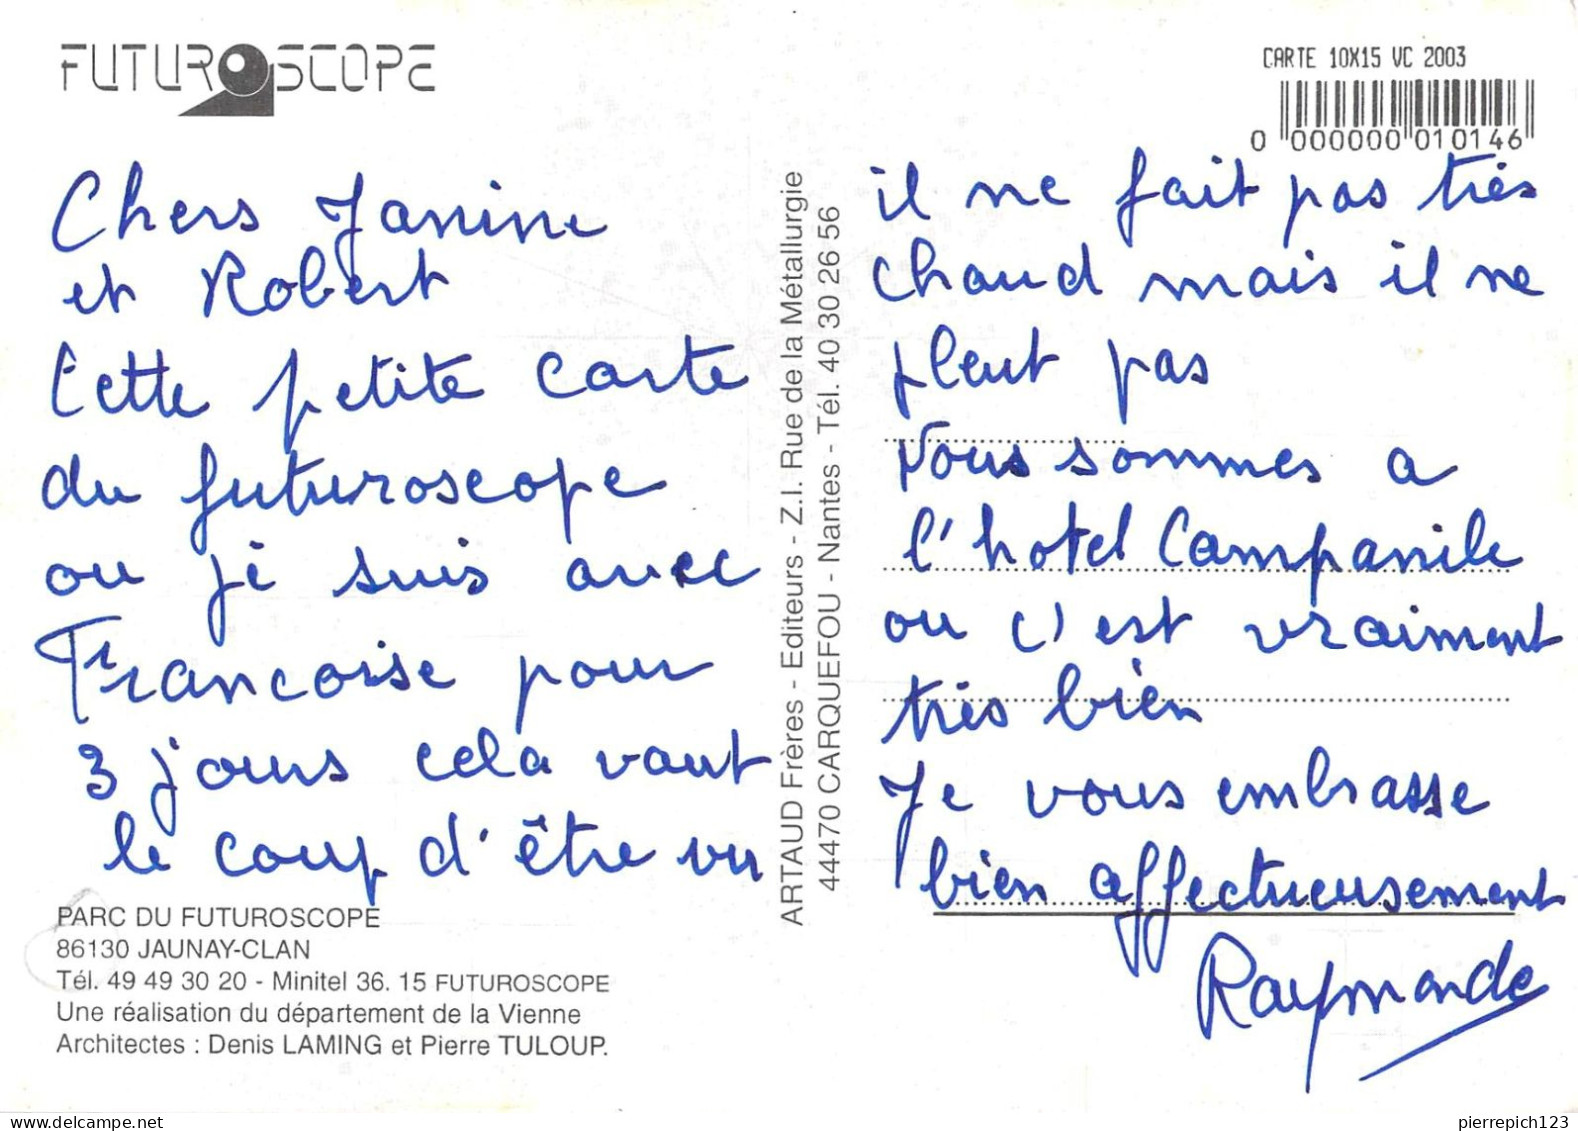 FUTUROSCOPE
CARTE 10X15 VC 2003
0 000000 010146
Chers Janine
et Robert
Cette petite carte
du futuroscope
ou je suis avec
Francoise pour
3 jours cela vaut
le coup d'être vu
PARC DU FUTUROSCOPE
86130 JAUNAY-CLAN
Tél. 49 49 30 20 - Minitel 36. 15 FUTUROSCOPE
Une réalisation du département de la Vienne
Architectes : Denis LAMING et Pierre TULOUP.
ARTAUD Frères - Editeurs - Z.I. Rue de la Métallurgie
44470 CARQUEFOU - Nantes - Tél. 40 30 26 56
il ne fait pas très
chaud mais il ne
pleut pas
Nous sommes a
l'hotel Campanile
ou c'est vraiment
très bien
Je vous embrasse
bien affectueusement
Raymonde
pierrepich123